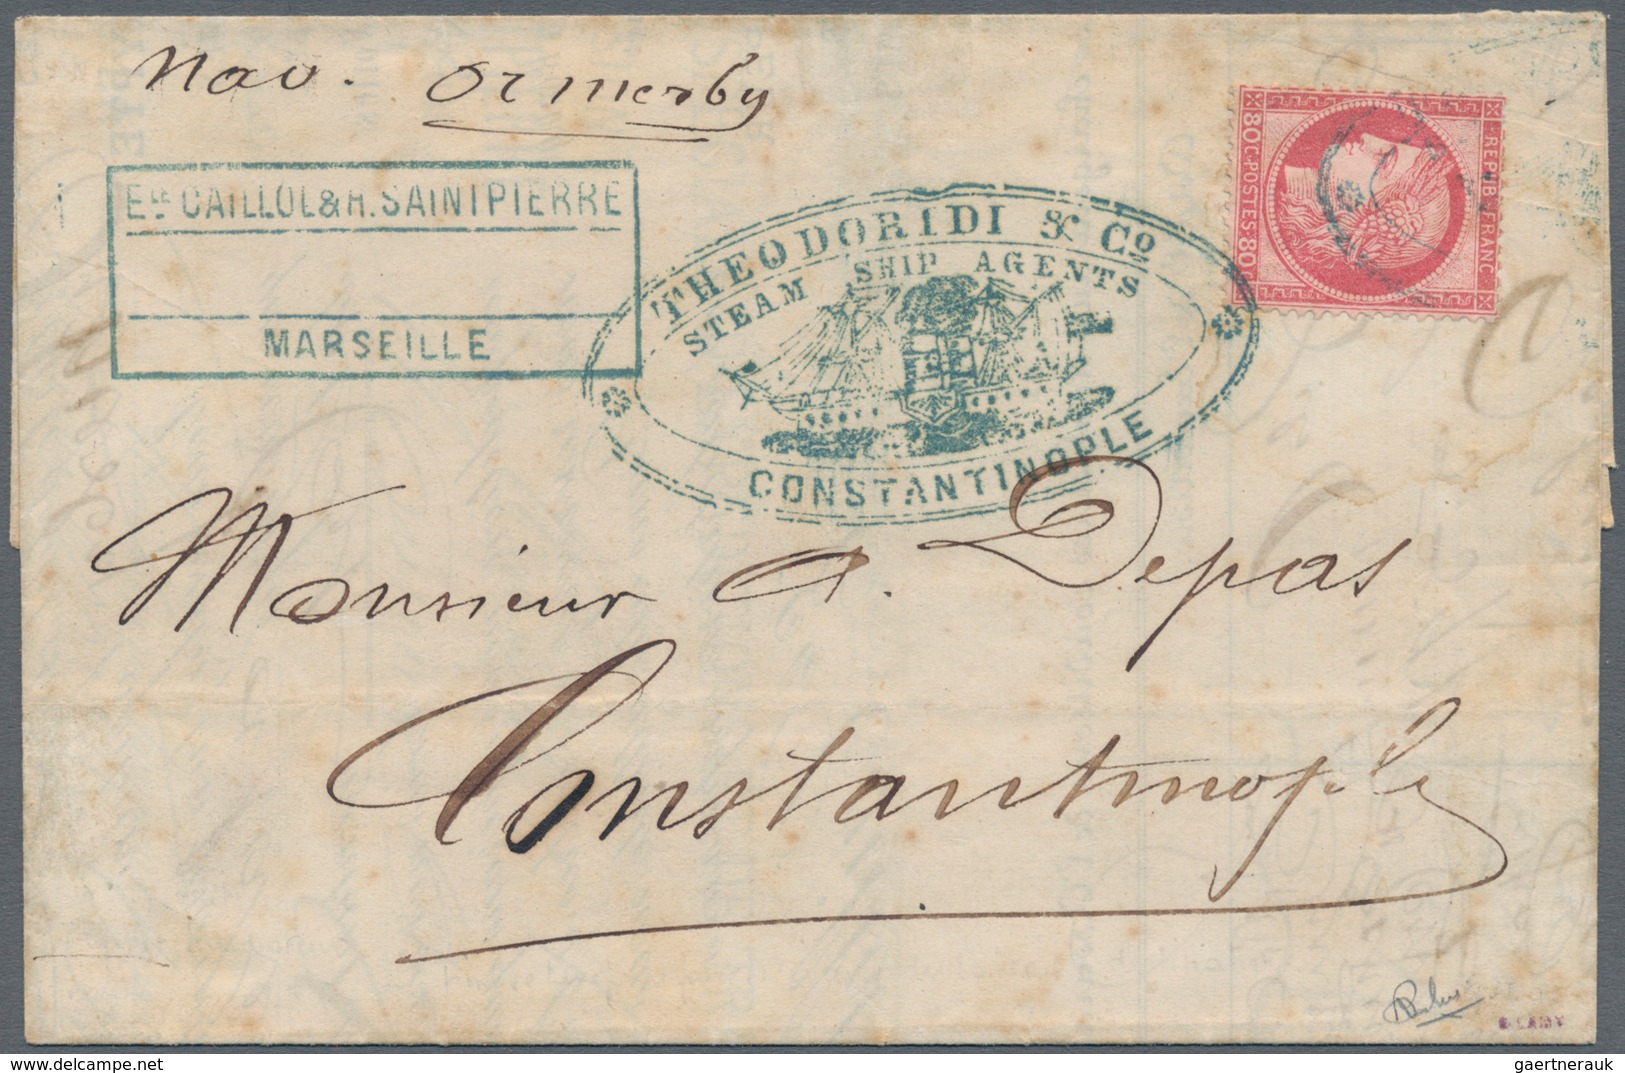 Nav. Ormerby
Ele CAILLOL & H. SAINT PIERRE
MARSEILLE
THEODORIDI & Co
STEAM SHIP AGENTS
CONSTANTINOPLE
REPUB·FRANC
80C·POSTES·80
Monsieur A. Depas
Constantinople
delcampe.net
gaertnerauk